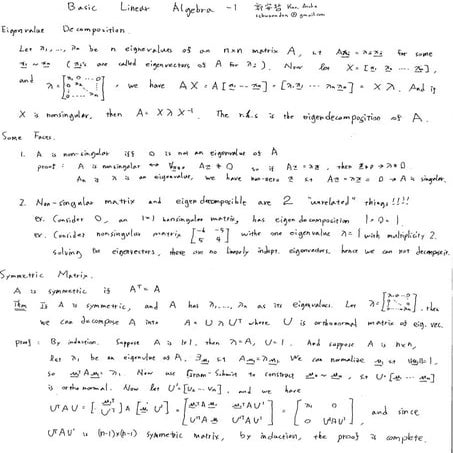 Basic Linear Algebra -1
Eigenvalue Decomposition.
Let λ₁, ..., λn be n eigenvalues of an n×n matrix A, st Axᵢ = λᵢxᵢ for some
x₁ ~ xn (xᵢ's are called eigenvectors of A for λᵢ). Now let X = [x₁ x₂ ... xn],
and λ = [λ₁ 0 ... 0 ... λn], we have AX = A[x₁ ... xn] = [λ₁x₁ ... λnxn] = Xλ. And if
X is nonsingular, then A = XλX⁻¹. The r.h.s is the eigendecomposition of A.
Some Faces.
1. A is non-singular iff 0 is not an eigenvalue of A
proof: A is nonsingular ⇔ Ax ≠ 0 so if Ax = λx, then λ ≠ 0.
λ is an eigenvalue, we have non-zero x st Ax = λx = 0 → A is singular.
2. Non-singular matrix and eigen decomposible are 2 "unrelated" things!!!!
ex. Consider 0, an 1×1 nonsingular matrix, has eigen decomposition 1·0·1.
ex. Consider nonsingular matrix with one eigenvalue λ=1 with multiplicity 2.
solving for eigenvectors, there are no linearly indpt. eigenvectors. hence we can not decomposit.
Symmetric Matrix.
A is symmetric if Aᵀ = A
Thm Is A is symmetric, and A has λ₁, ..., λn as its eigenvalues. Let λ = , then
we can decompose A into A = UλUᵀ where U is orthonormal matrix of eig. vec.
proof: By induction. Suppose A is 1×1. then λ=A, U=1. And suppose A is n×n,
let λ₁ be an eigenvalue of A. ∃u₁ st Au₁ = λ₁u₁. We can normalize u₁ st ‖u₁‖=1,
so u₁ᵀAu₁ = λ₁. Now use Gram-Schmit to construct u₂ ~ un, st U = [u₁ ... un]
is orthonormal. Now let U' = [u₂ ... un], and we have
UᵀAU = [u₁ᵀ U'ᵀ] A [u₁ U'] = [u₁ᵀAu₁ u₁ᵀAU' U'ᵀAu₁ U'ᵀAU'] = [λ₁ 0 0 U'ᵀAU'], and since
U'ᵀAU' is (n-1)×(n-1) symmetric matrix, by induction, the proof is complete.